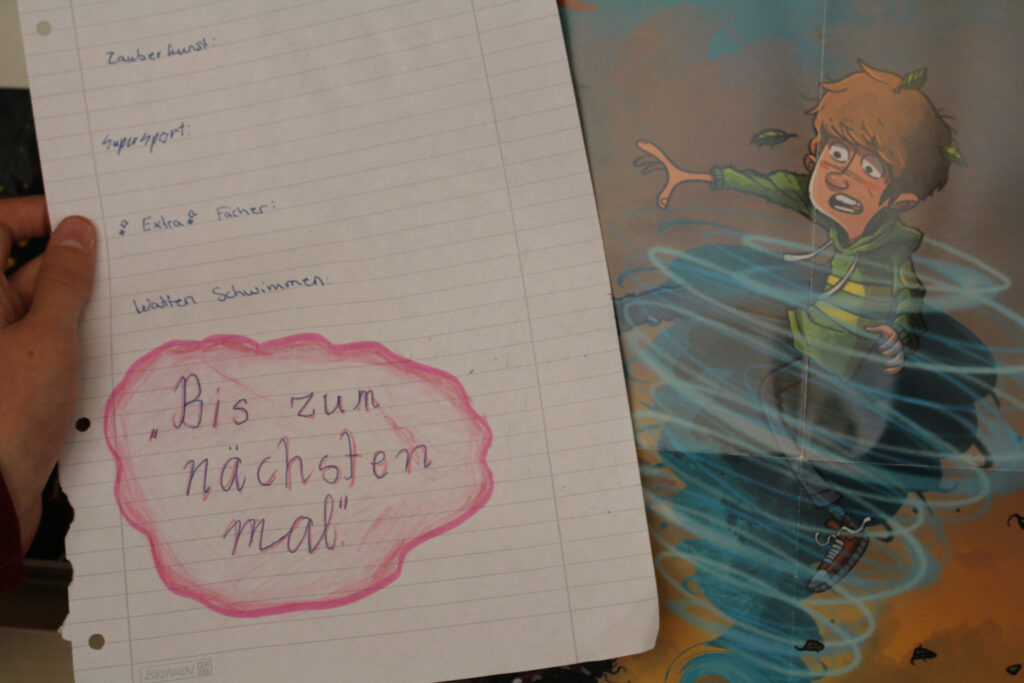 Zauberkunst:
Supersport:
Extra Fächer:
Watten Schwimmen:
„Bis zum
nächsten
mal“